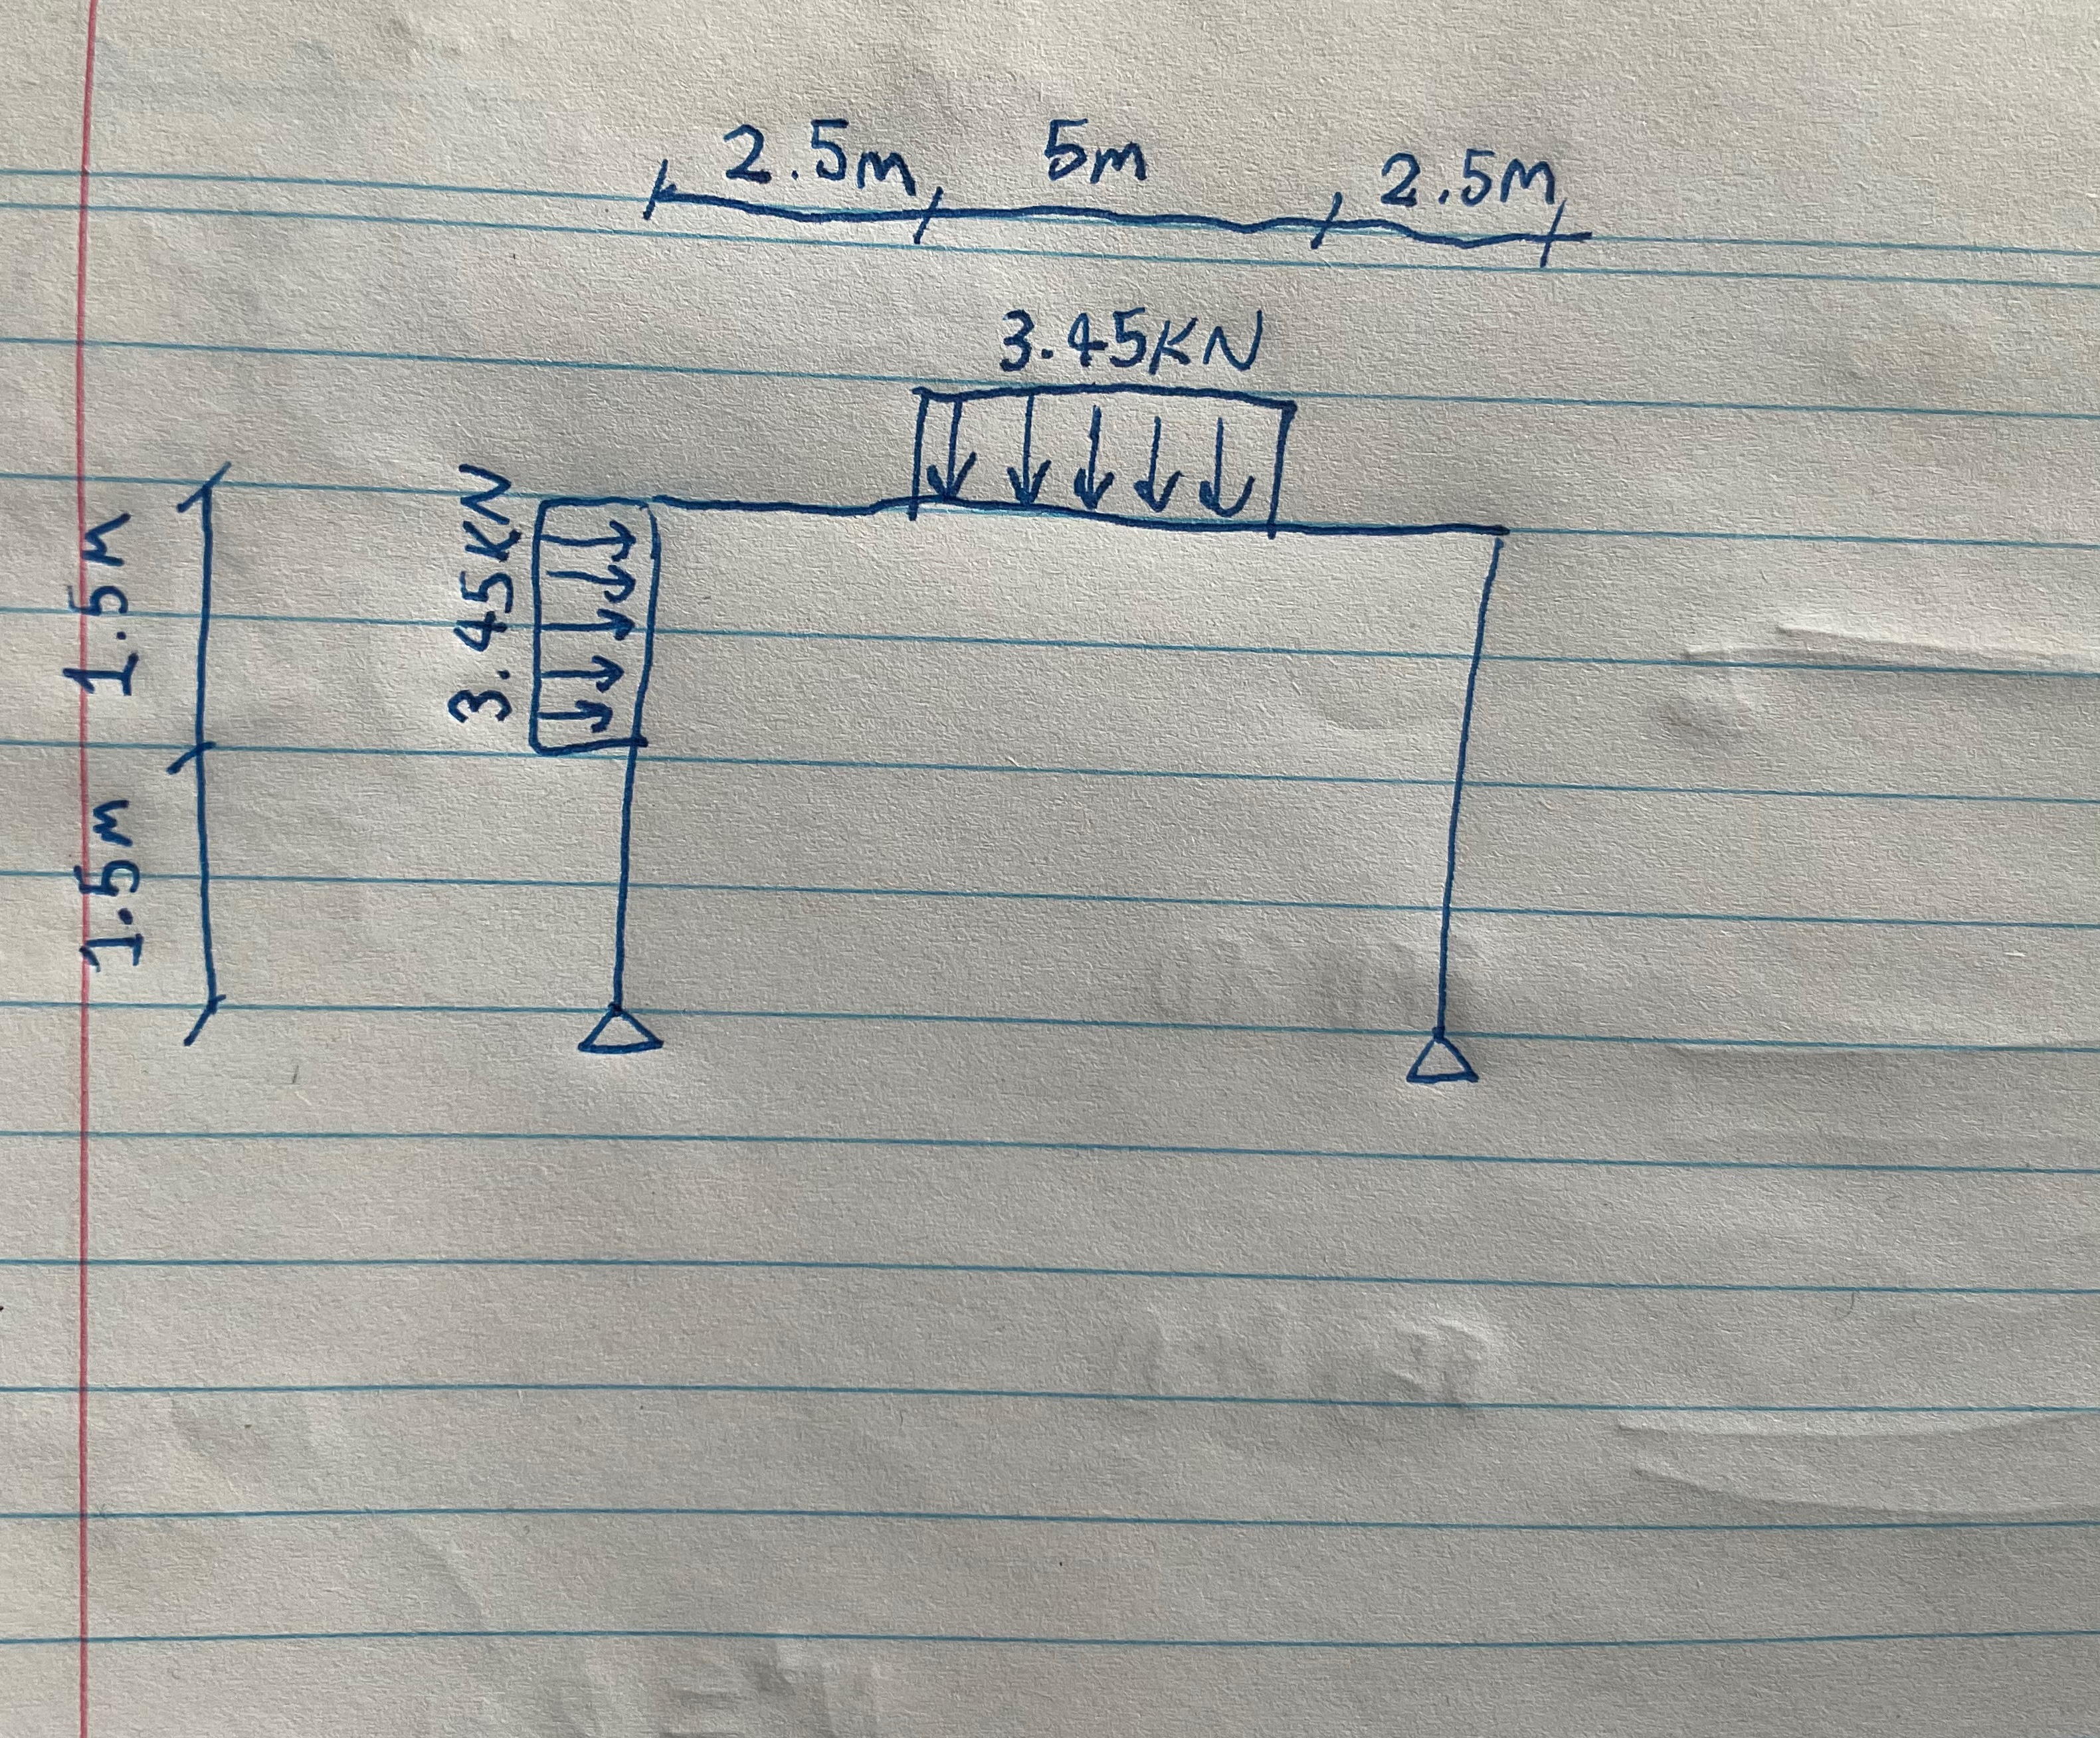 2.5m 5m 2.5m
3.45KN
3.45KN
1.5m
1.5m